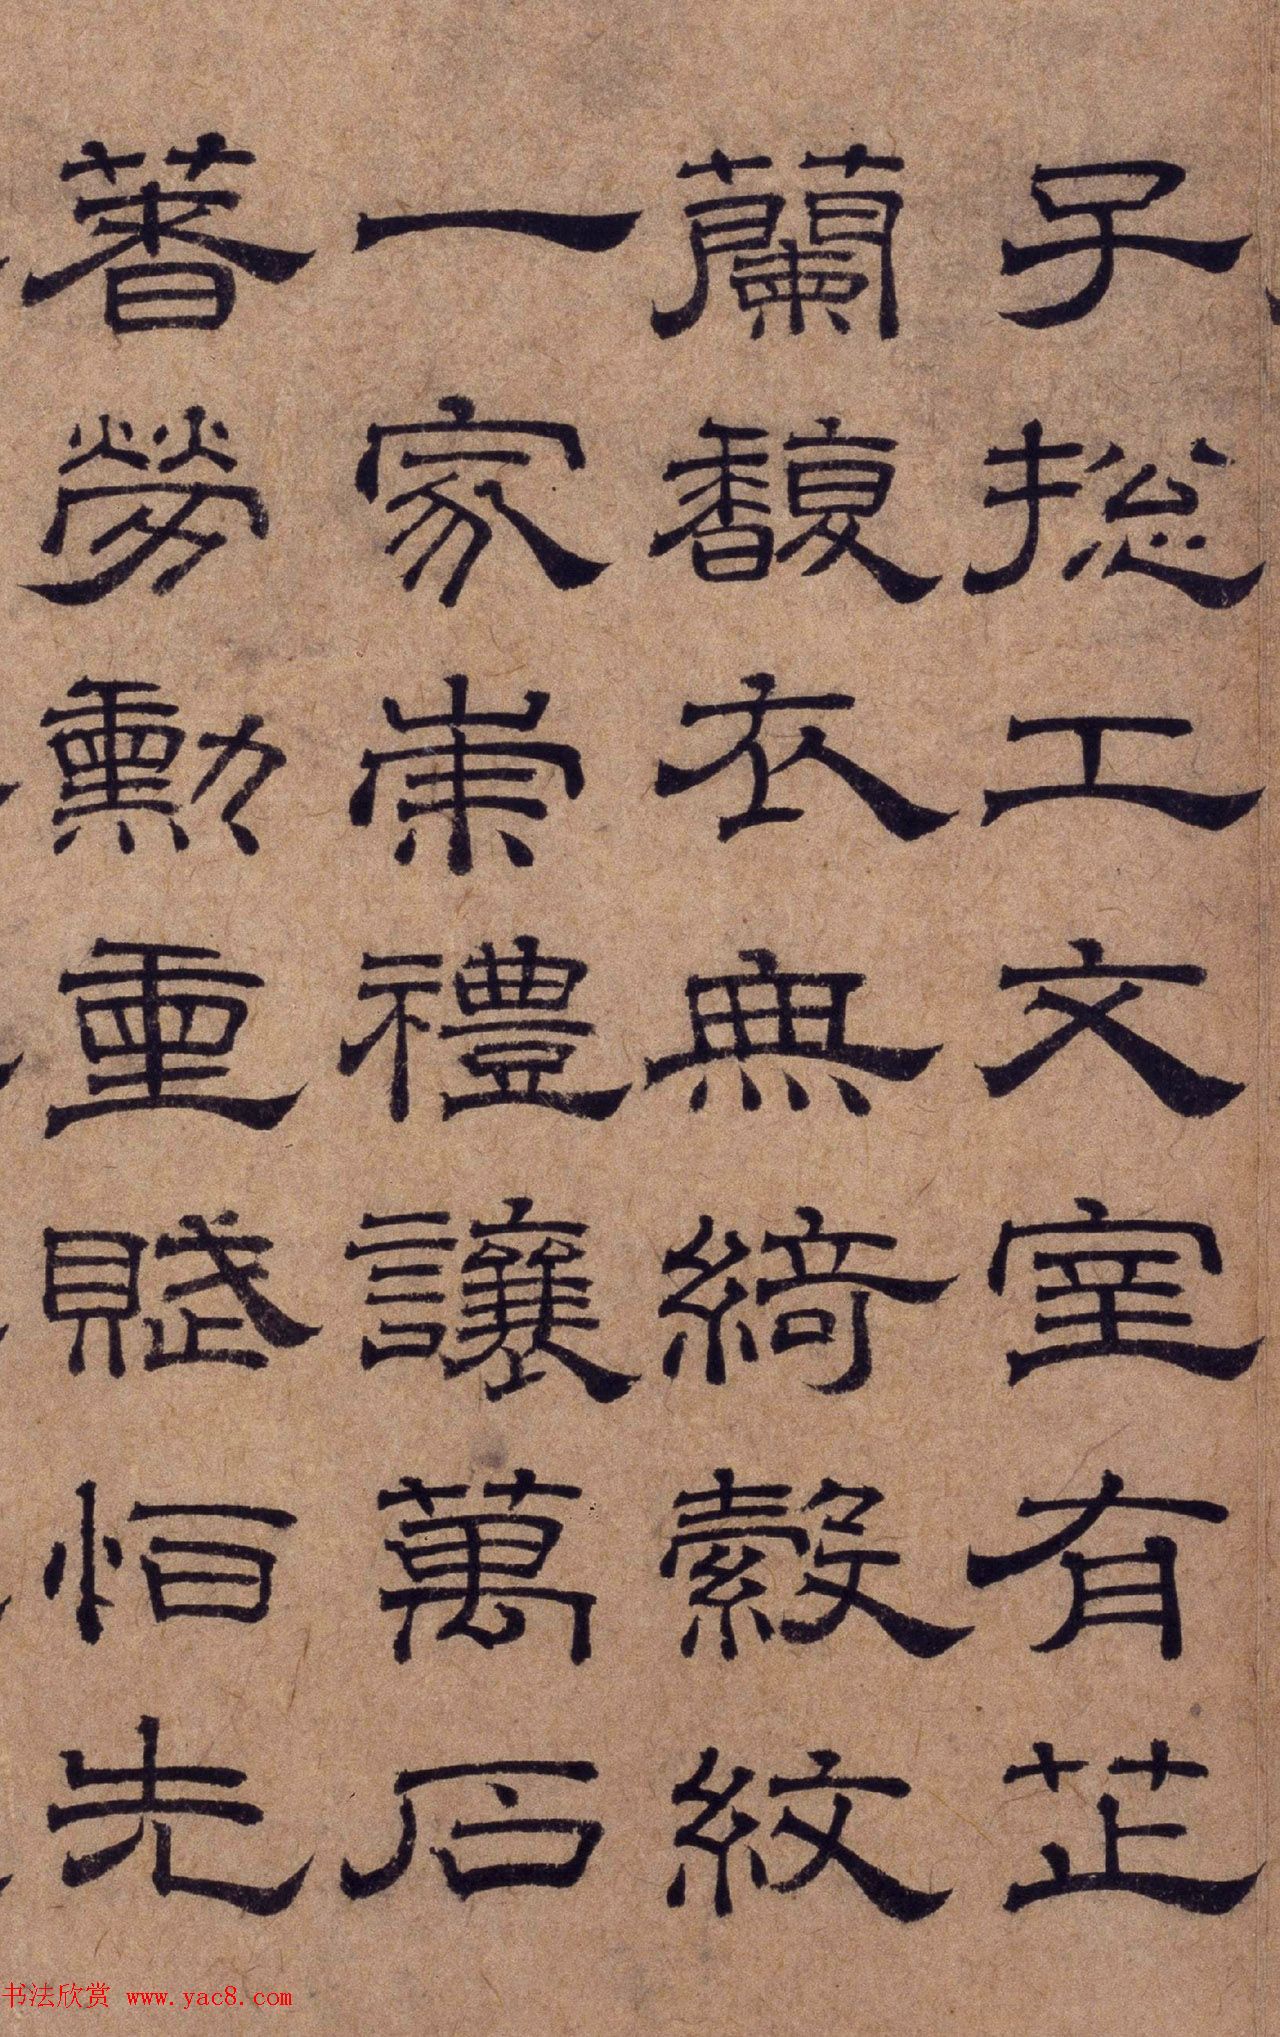 子摠工文室有芷
蘭馥衣無綺縠紋
一家崇禮讓萬石
著勞勳重賦恒先
书法欣赏 www.yac8.com